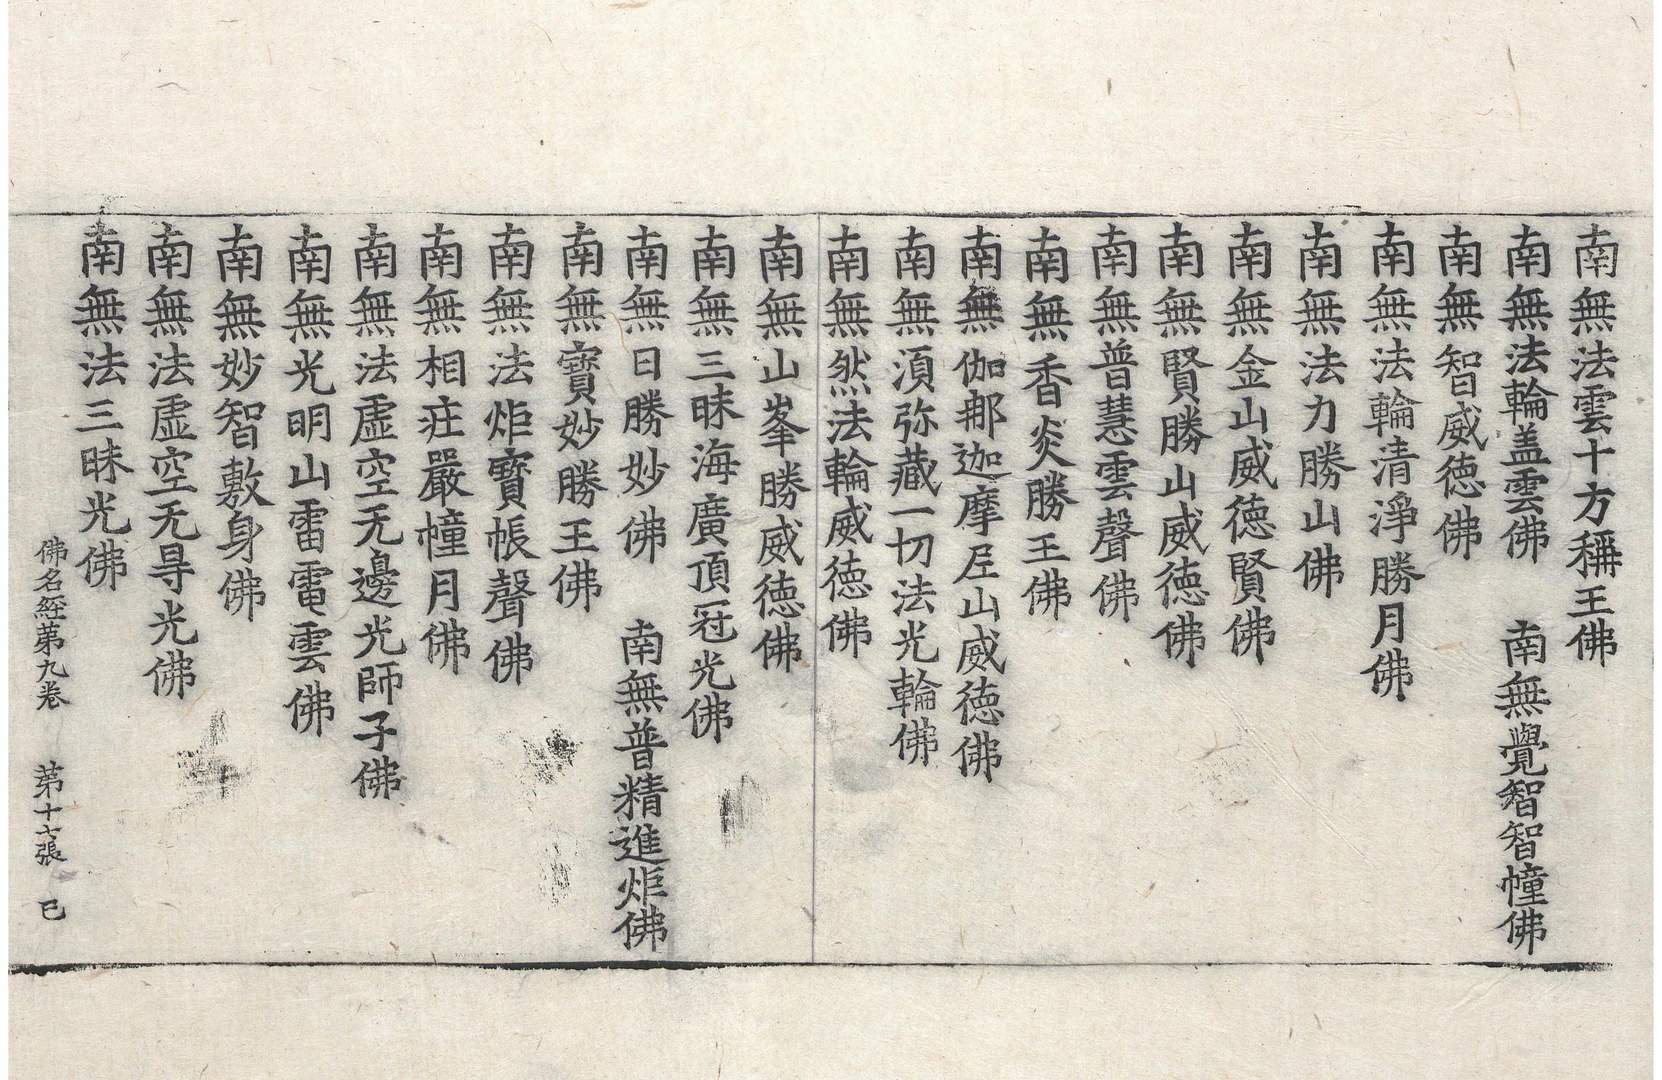 南無法雲十方稱王佛
南無法輪盖雲佛　南無覺智智幢佛
南無智威德佛
南無法輪清淨勝月佛
南無法力勝山佛
南無金山威德賢佛
南無賢勝山威德佛
南無普慧雲聲佛
南無香炎勝王佛
南無伽那迦摩𡰱山威德佛
南無湏弥藏一切法光輪佛
南無然法輪威德佛
南無山峯勝威德佛
南無三昧海廣頂冠光佛
南無日勝妙佛　南無普精進炬佛
南無寶妙勝王佛
南無法炬寶帳聲佛
南無相莊嚴幢月佛
南無法虛空无邊光師子佛
南無光明山雷電雲佛
南無妙智敷身佛
南無法虛空无㝵光佛
南無法三昧光佛
佛名経苐九卷　苐十七張　巳